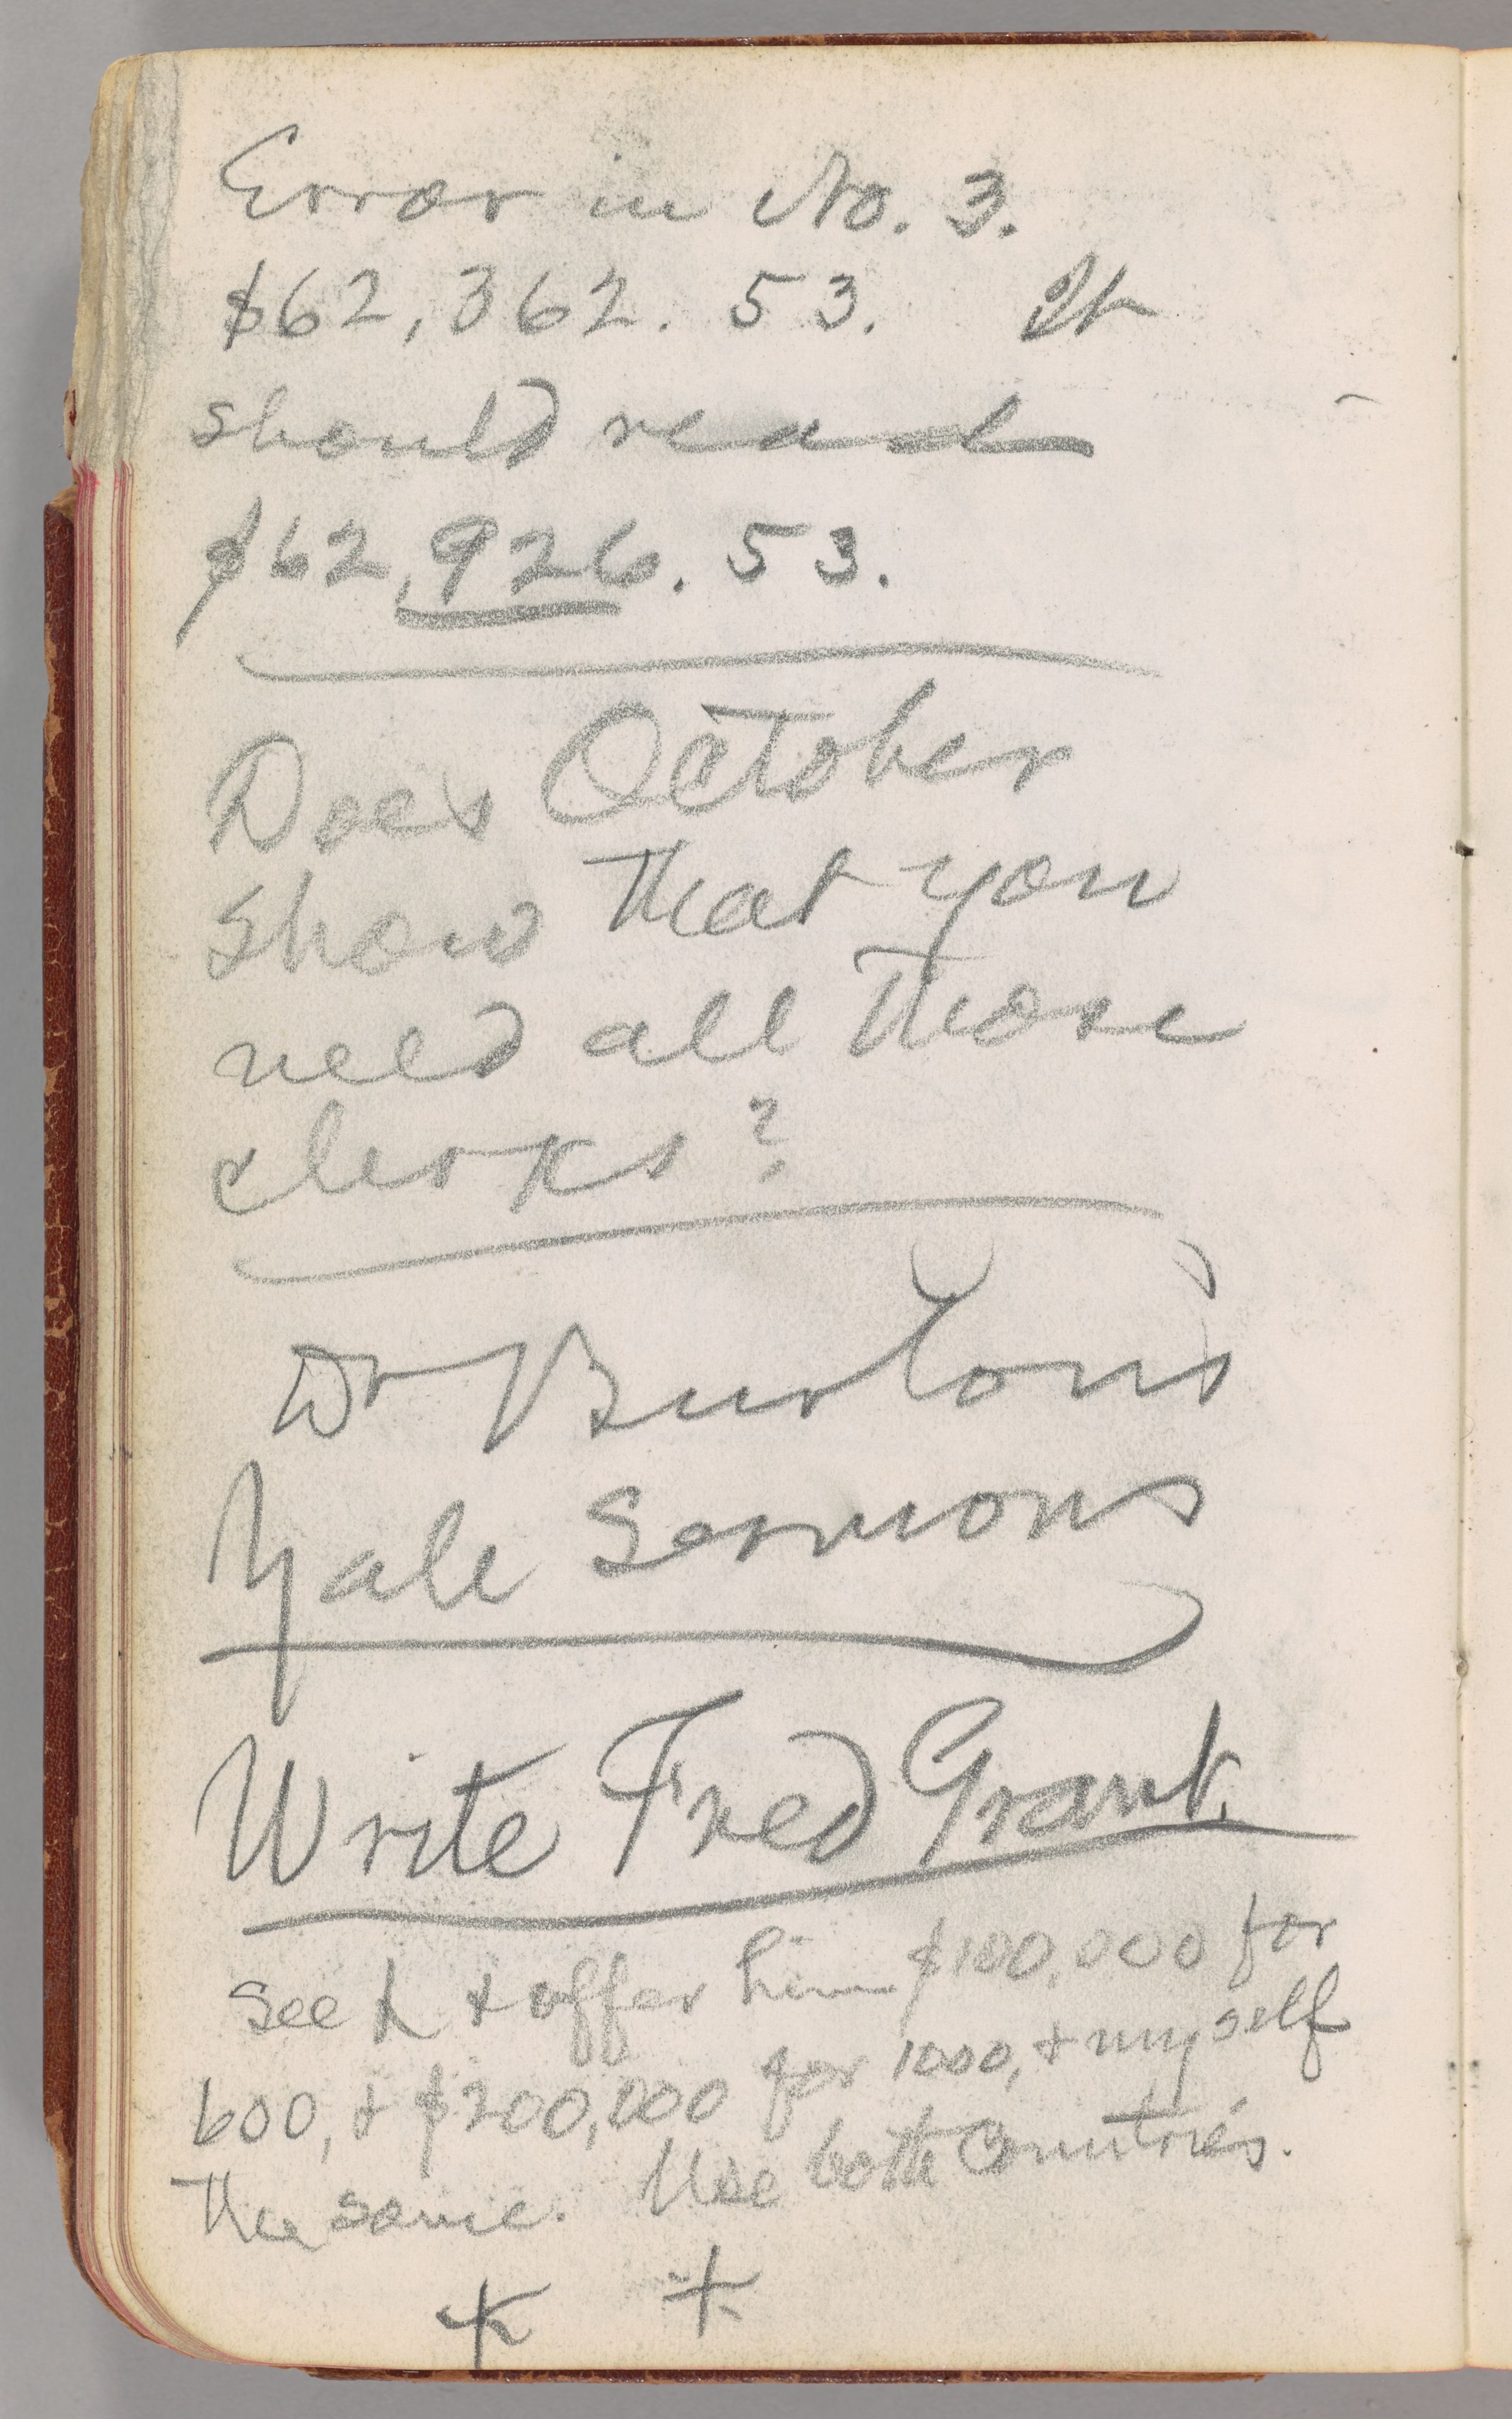 Error in No. 3.
$62,362. 53. It
should read
$62,926. 53.
Does October
show that you
need all those
clerks?
Dr Burton's
Yale Sermons
Write Fred Grant.
See & offer him $100,000 for
600, & $200,000 for 1000, & myself
the same. Use both Countries.